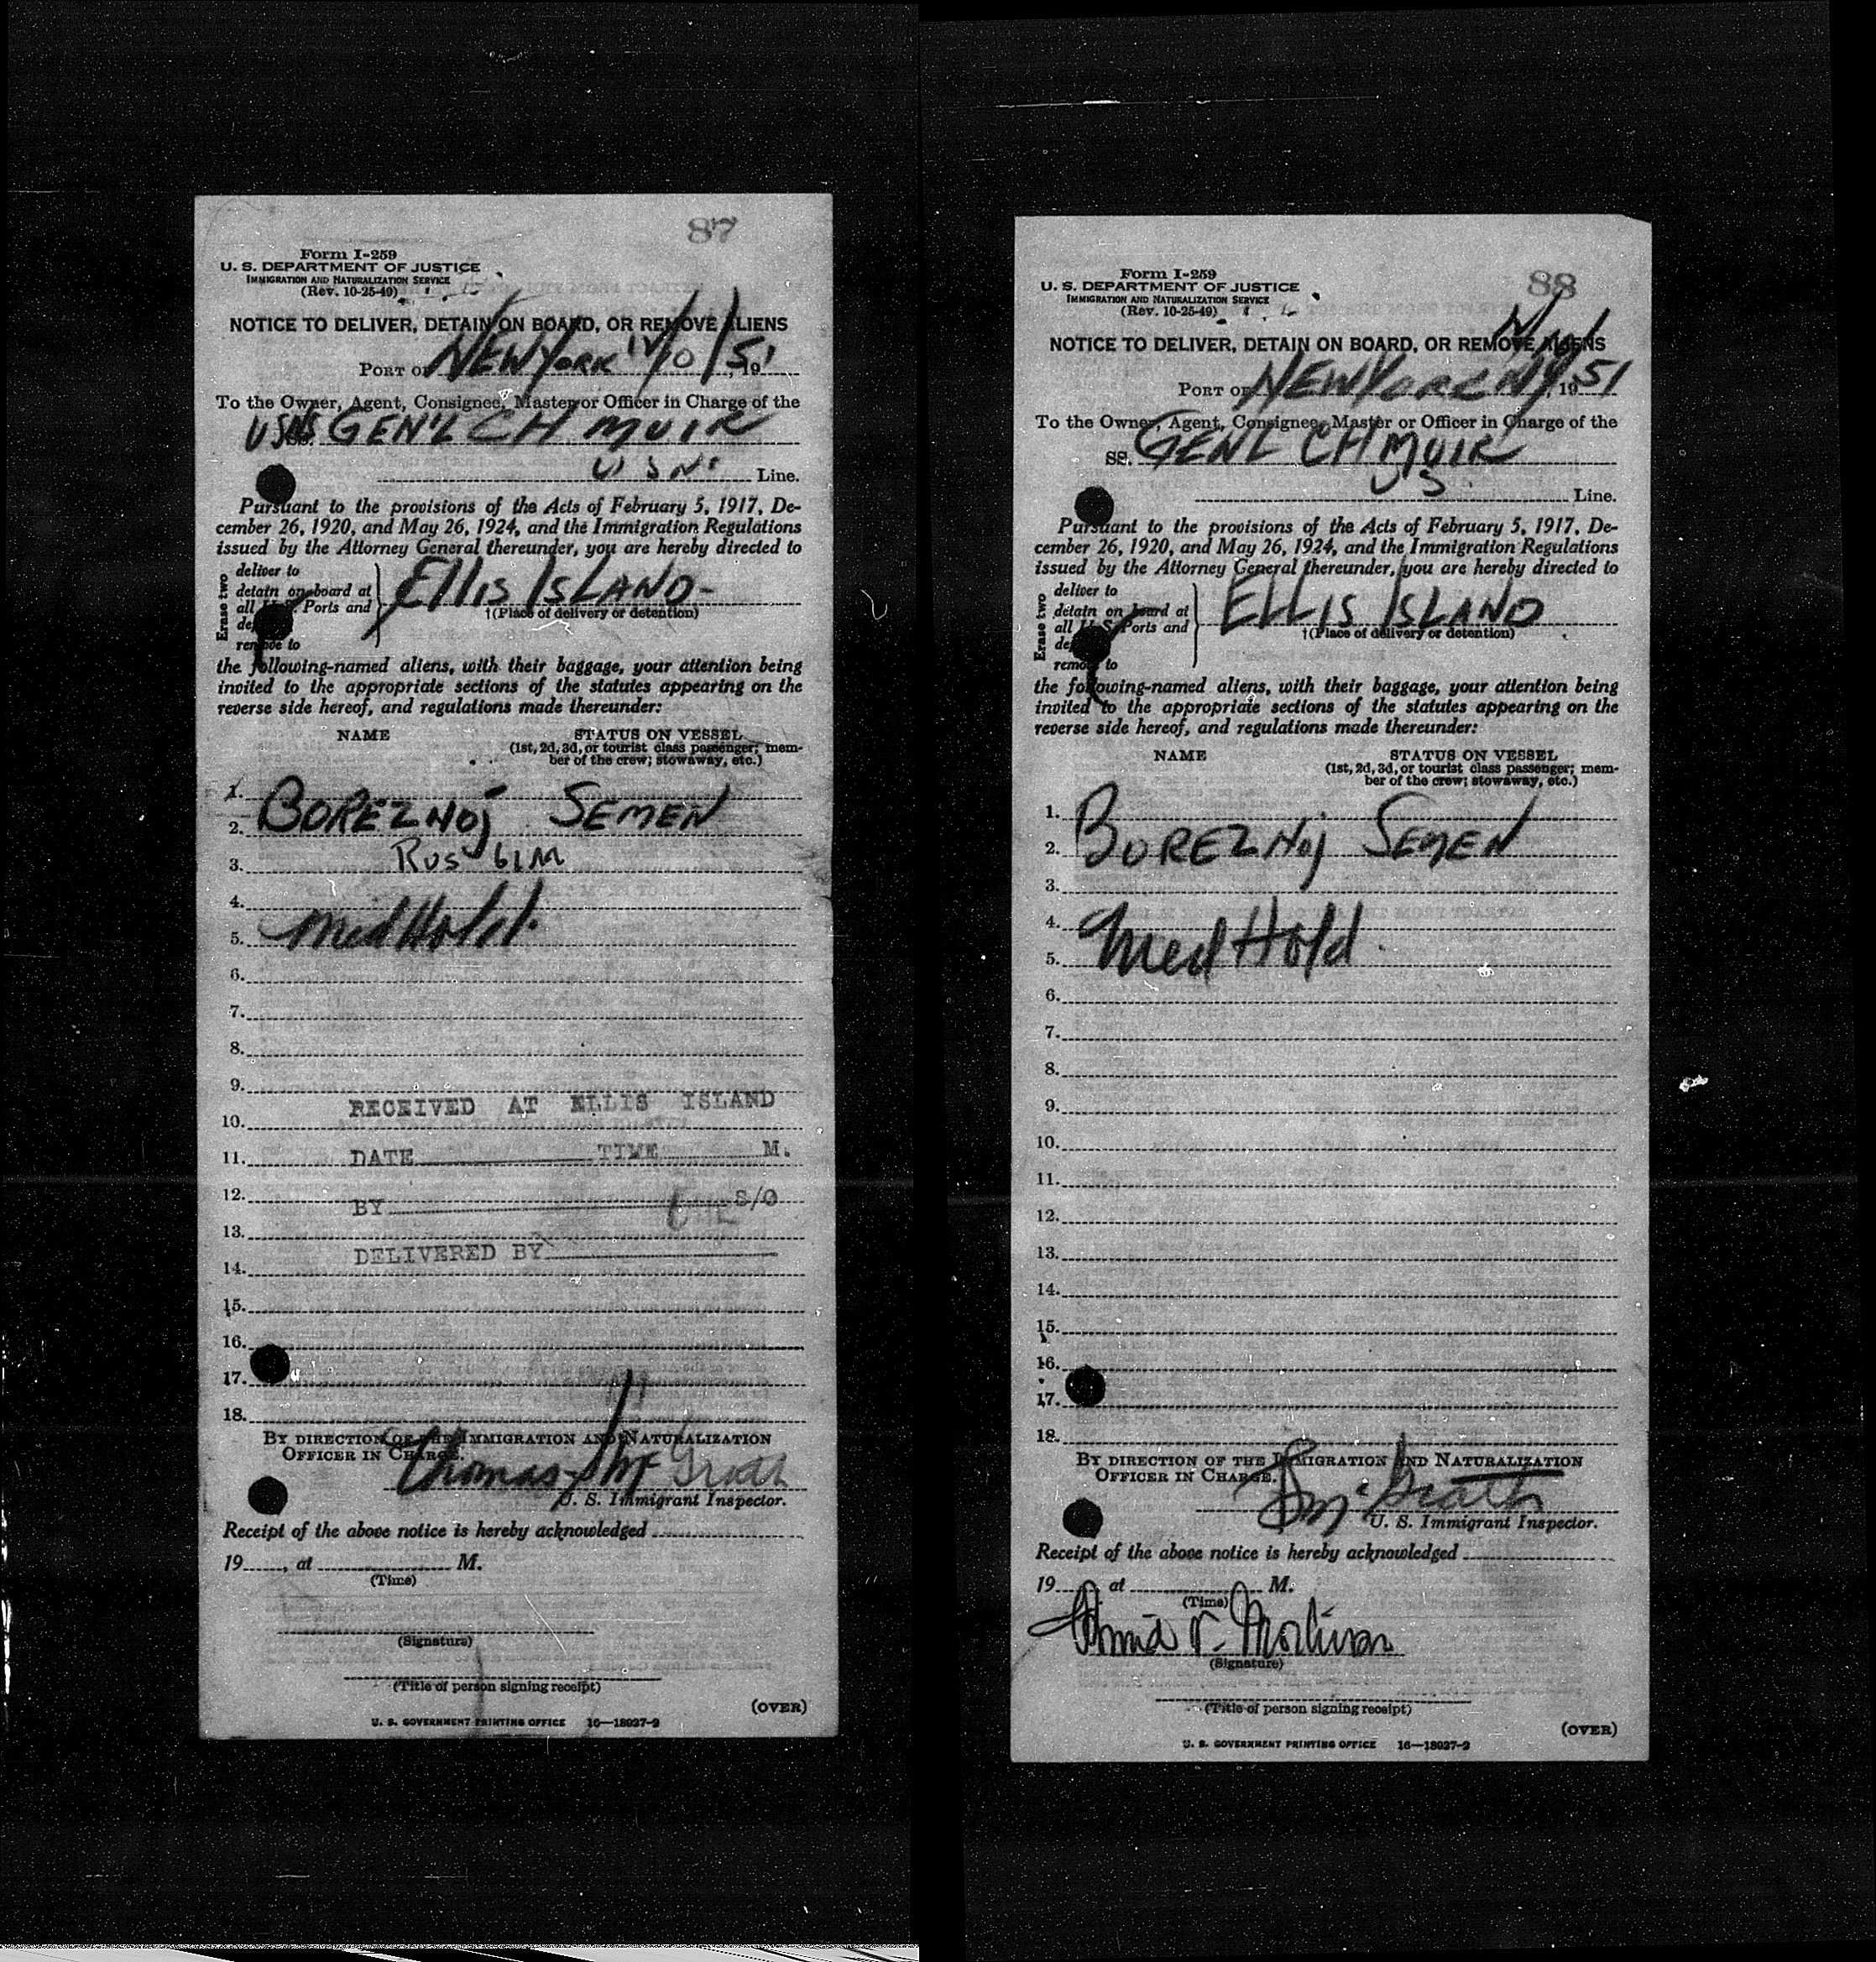 87
Form I-259
U. S. DEPARTMENT OF JUSTICE
IMMIGRATION AND NATURALIZATION SERVICE
(Rev. 10-25-49)
NOTICE TO DELIVER, DETAIN ON BOARD, OR REMOVE ALIENS
PORT OF NEW YORK 12/10/51, 19
To the Owner, Agent, Consignee, Master or Officer in Charge of the
USNS GEN'L CH MUIR
U S N. Line.
Pursuant to the provisions of the Acts of February 5, 1917, De-
cember 26, 1920, and May 26, 1924, and the Immigration Regulations
issued by the Attorney General thereunder, you are hereby directed to
Erase two
deliver to
detain on board at
all U. S. Ports and
remove to
ELLIS ISLAND-
†(Place of delivery or detention)
the following-named aliens, with their baggage, your attention being
invited to the appropriate sections of the statutes appearing on the
reverse side hereof, and regulations made thereunder:
NAME STATUS ON VESSEL
(1st, 2d, 3d, or tourist class passenger; mem-
ber of the crew; stowaway, etc.)
1.
2. BOREZNOj SEMEN
3. RUS 61M
4.
5. Med Hold.
6.
7.
8.
9.
RECEIVED AT ELLIS ISLAND
10.
11. DATE TIME M.
12.
BY S/O
13.
DELIVERED BY
14.
15.
16.
17.
18.
BY DIRECTION OF THE IMMIGRATION AND NATURALIZATION
OFFICER IN CHARGE.
Thomas McGrath
U. S. Immigrant Inspector.
Receipt of the above notice is hereby acknowledged
19, at M.
(Time)
(Signature)
(Title of person signing receipt)
(OVER)
U. S. GOVERNMENT PRINTING OFFICE 16—18027-2
88
Form I-259
U. S. DEPARTMENT OF JUSTICE
IMMIGRATION AND NATURALIZATION SERVICE
(Rev. 10-25-49)
NOTICE TO DELIVER, DETAIN ON BOARD, OR REMOVE ALIENS
PORT OF NEW YORK NY, 1951
To the Owner, Agent, Consignee, Master or Officer in Charge of the
SS. GENL CH MUIR
U S. Line.
Pursuant to the provisions of the Acts of February 5, 1917, De-
cember 26, 1920, and May 26, 1924, and the Immigration Regulations
issued by the Attorney General thereunder, you are hereby directed to
Erase two
deliver to
detain on board at
all U. S. Ports and
remove to
ELLIS ISLAND
†(Place of delivery or detention)
the following-named aliens, with their baggage, your attention being
invited to the appropriate sections of the statutes appearing on the
reverse side hereof, and regulations made thereunder:
NAME STATUS ON VESSEL
(1st, 2d, 3d, or tourist class passenger; mem-
ber of the crew; stowaway, etc.)
1.
2. BOREZNOj SEMEN
3.
4.
5. Med Hold.
6.
7.
8.
9.
10.
11.
12.
13.
14.
15.
16.
17.
18.
BY DIRECTION OF THE IMMIGRATION AND NATURALIZATION
OFFICER IN CHARGE.
McGrath
U. S. Immigrant Inspector.
Receipt of the above notice is hereby acknowledged
19, at M.
(Time)
(Signature)
(Title of person signing receipt)
(OVER)
U. S. GOVERNMENT PRINTING OFFICE 16—18027-2